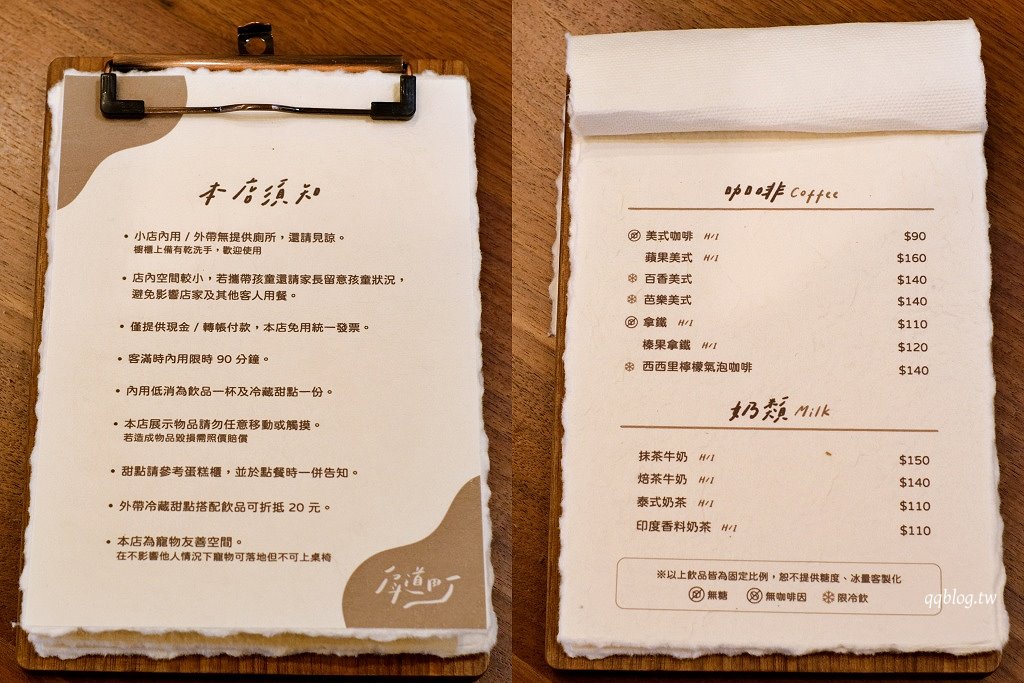 本店須知
• 小店內用 / 外帶無提供廁所，還請見諒。
櫥櫃上備有乾洗手，歡迎使用
• 店內空間較小，若攜帶孩童還請家長留意孩童狀況，
避免影響店家及其他客人用餐。
• 僅提供現金 / 轉帳付款，本店免用統一發票。
• 客滿時內用限時 90 分鐘。
• 內用低消為飲品一杯及冷藏甜點一份。
• 本店展示物品請勿任意移動或觸摸。
若造成物品毀損需照價賠償
• 甜點請參考蛋糕櫃，並於點餐時一併告知。
• 外帶冷藏甜點搭配飲品可折抵 20 元。
• 本店為寵物友善空間。
在不影響他人情況下寵物可落地但不可上桌椅
咖啡 Coffee
美式咖啡 H/I $90
蘋果美式 H/I $160
百香美式 $140
芭樂美式 $140
拿鐵 H/I $110
榛果拿鐵 H/I $120
西西里檸檬氣泡咖啡 $140
奶類 Milk
抹茶牛奶 H/I $150
焙茶牛奶 H/I $140
泰式奶茶 H/I $110
印度香料奶茶 H/I $110
※以上飲品皆為固定比例，恕不提供糖度、冰量客製化
無糖 無咖啡因 限冷飲
qqblog.tw